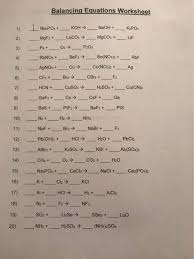 Balancing Equations Worksheet
1) 1 Na₃PO₄ + ___ KOH → ___ NaOH + ___ K₃PO₄
2) ___ MgF₂ + ___ Li₂CO₃ → ___ MgCO₃ + ___ LiF
3) ___ P₄ + ___ O₂ → ___ P₂O₃
4) ___ RbNO₃ + ___ BeF₂ → ___ Be(NO₃)₂ + ___ RbF
5) ___ AgNO₃ + ___ Cu → ___ Cu(NO₃)₂ + ___ Ag
6) ___ CF₄ + ___ Br₂ → ___ CBr₄ + ___ F₂
7) ___ HCN + ___ CuSO₄ → ___ H₂SO₄ + ___ Cu(CN)₂
8) ___ GaF₃ + ___ Cs → ___ CsF + ___ Ga
9) ___ BaS + ___ PtF₂ → ___ BaF₂ + ___ PtS
10) ___ N₂ + ___ H₂ → ___ NH₃
11) ___ NaF + ___ Br₂ → ___ NaBr + ___ F₂
12) ___ Pb(OH)₂ + ___ HCl → ___ H₂O + ___ PbCl₂
13) ___ AlBr₃ + ___ K₂SO₄ → ___ KBr + ___ Al₂(SO₄)₃
14) ___ CH₄ + ___ O₂ → ___ CO₂ + ___ H₂O
15) ___ Na₃PO₄ + ___ CaCl₂ → ___ NaCl + ___ Ca₃(PO₄)₂
16) ___ K + ___ Cl₂ → ___ KCl
17) ___ Al + ___ HCl → ___ H₂ + ___ AlCl₃
18) ___ N₂ + ___ F₂ → ___ NF₃
19) ___ SO₂ + ___ Li₂Se → ___ SSe₂ + ___ Li₂O
20) ___ NH₃ + ___ H₂SO₄ → ___ (NH₄)₂SO₄